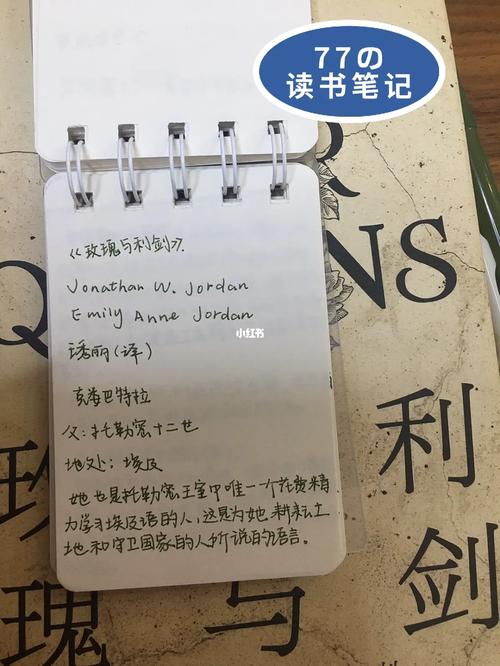 77の
读书笔记
《玫瑰与利剑》.
Jonathan W. Jordan
Emily Anne Jordan
琇丽(译)
克娄巴特拉
父:托勒密十二世
地处:埃及
她也是托勒密王室中唯一一个花费精
力学习埃及语的人,这是为她耕耘土
地和守卫国家的人所说的语言。
小红书
QUEENS
玫瑰
与
利剑